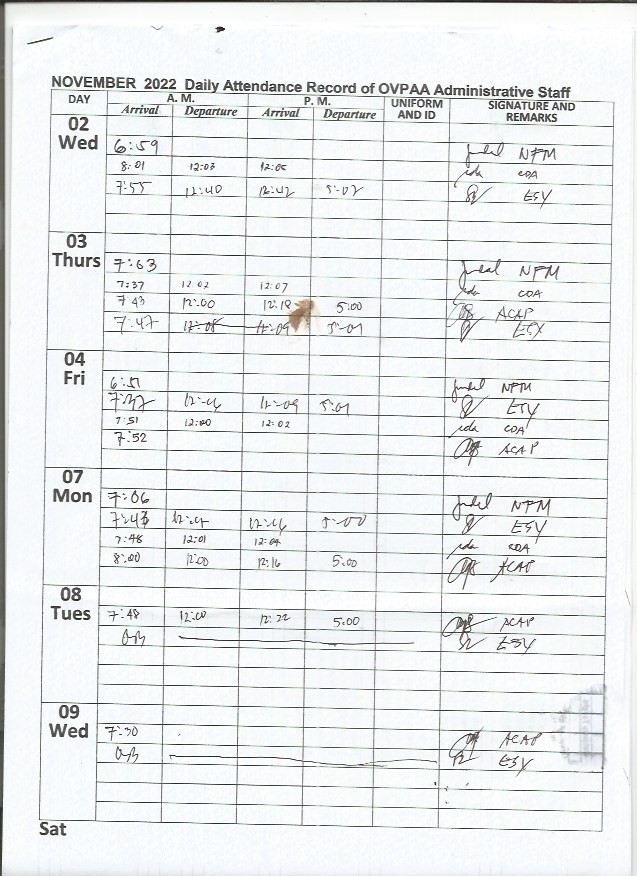 NOVEMBER 2022 Daily Attendance Record of OVPAA Administrative Staff
DAY A. M. P. M. UNIFORM AND ID SIGNATURE AND REMARKS
Arrival Departure Arrival Departure
02
Wed
6:59 NFM
8:01 12:03 12:05 CDA
7:55 12:40 12:42 5:02 ESY
03
Thurs
7:03 NFM
7:37 12:02 12:07 CDA
7:43 12:00 12:18 5:00 ACAP
7:47 12:08 12:09 5:01 ESY
04
Fri
6:51 NFM
7:37 12:09 5:01 ESY
7:51 12:00 12:02 CDA
7:52 ACAP
07
Mon
7:06 NFM
7:43 5:00 ESY
7:48 12:01 12:04 CDA
8:00 12:00 12:16 5:00 ACAP
08
Tues
7:48 12:00 12:22 5:00 ACAP
OB ESY
09
Wed
7:30 ACAP
OB ESY
Sat